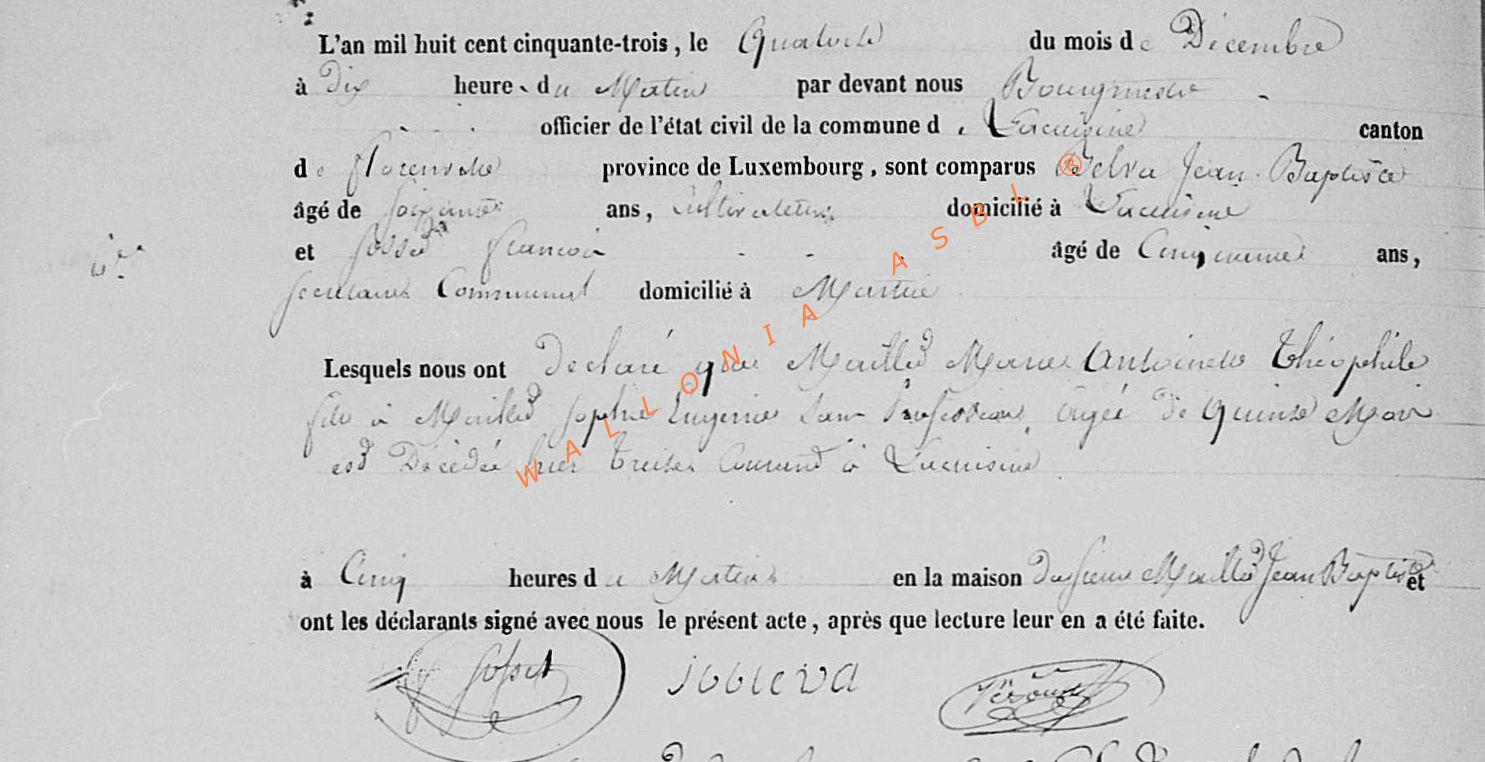 L'an mil huit cent cinquante-trois, le Quatorze du mois de Décembre
à Dix heure. du Matin par devant nous Bourgmestre
officier de l'état civil de la commune de Lacuisine canton
de Florenville province de Luxembourg, sont comparus Jean Baptiste
âgé de soixante ans, cultivateur domicilié à Lacuisine
et Gosset François âgé de Cinquante ans,
secretaire Communal domicilié à Martué
Lesquels nous ont Declaré que Maillet Marie Antoinette Théophile
fille à Maillet Sophie Eugenie sans Profession, âgée de quinze Mois
est Décédée hier treize Courant à Lacuisine
à Cinq heures du Matin en la maison du sieur Maillet Jean Baptiste et
ont les déclarants signé avec nous le présent acte, après que lecture leur en a été faite.
Gosset
WALLONIA ASBL ®